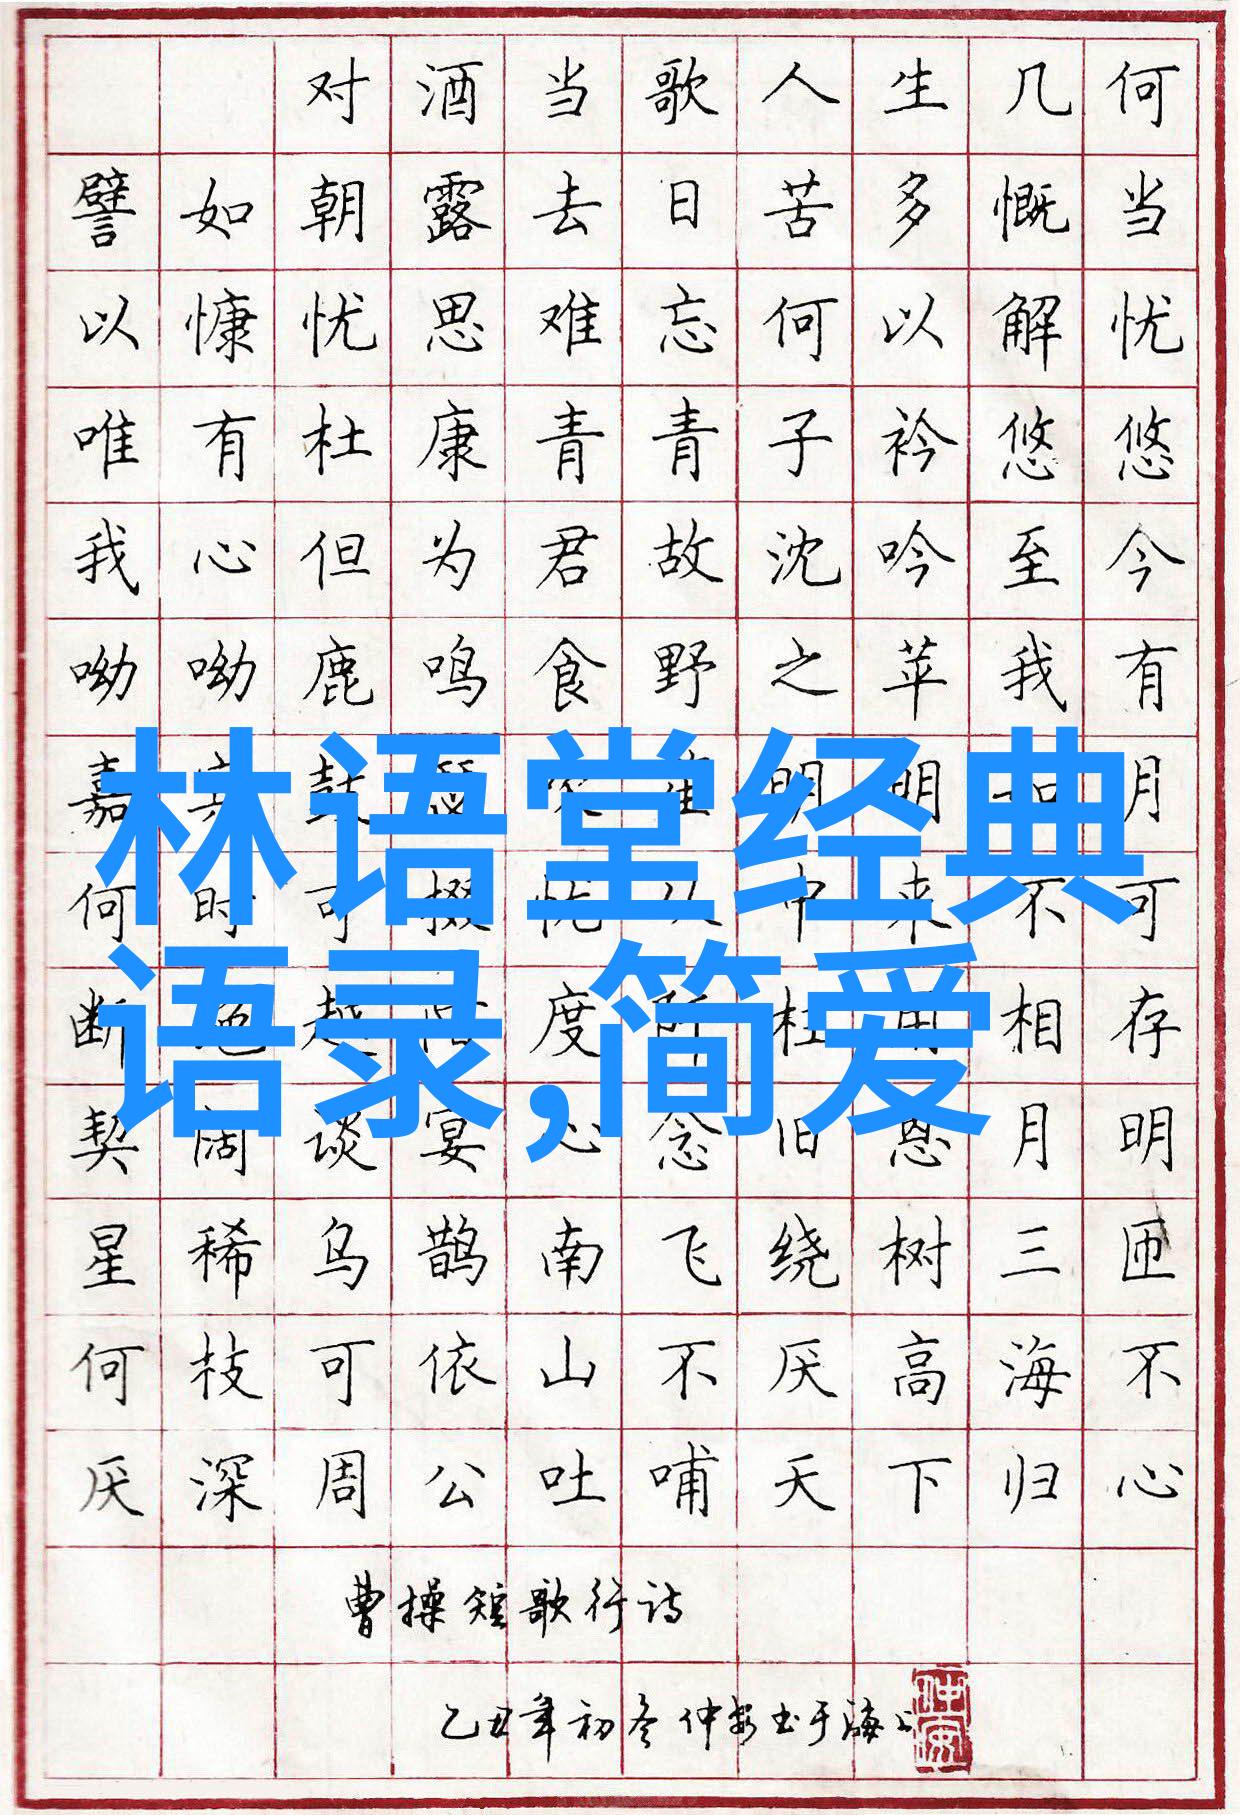 对酒当歌人生几何
譬如朝露去日苦多慨当
以慷忧思难忘何以解忧
唯有杜康青青子衿悠悠
我心但为君故沈吟至今
呦呦鹿鸣食野之苹我有
嘉鼓瑟明明如月
林语堂经典
何时可掇忧从中来不可
断越度用相存
语录,简爱
契阔谈宴心念旧恩月明
星稀乌鹊南飞绕树三匝
何枝可依山不厌高海不
厌深周公吐哺天下归心
曹操短歌行诗
乙丑年初冬仲安书于海上
仲安